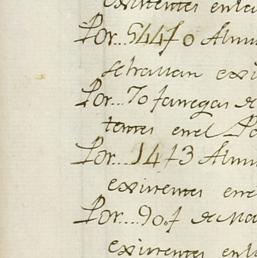 existentes en la
Por... 54470 Almu
se hallan exi
Por... 70 fanegas de
tentes en el Po
Por... 1473 Almu
existentes en e
Por... 90.f de Ma
existentes en l